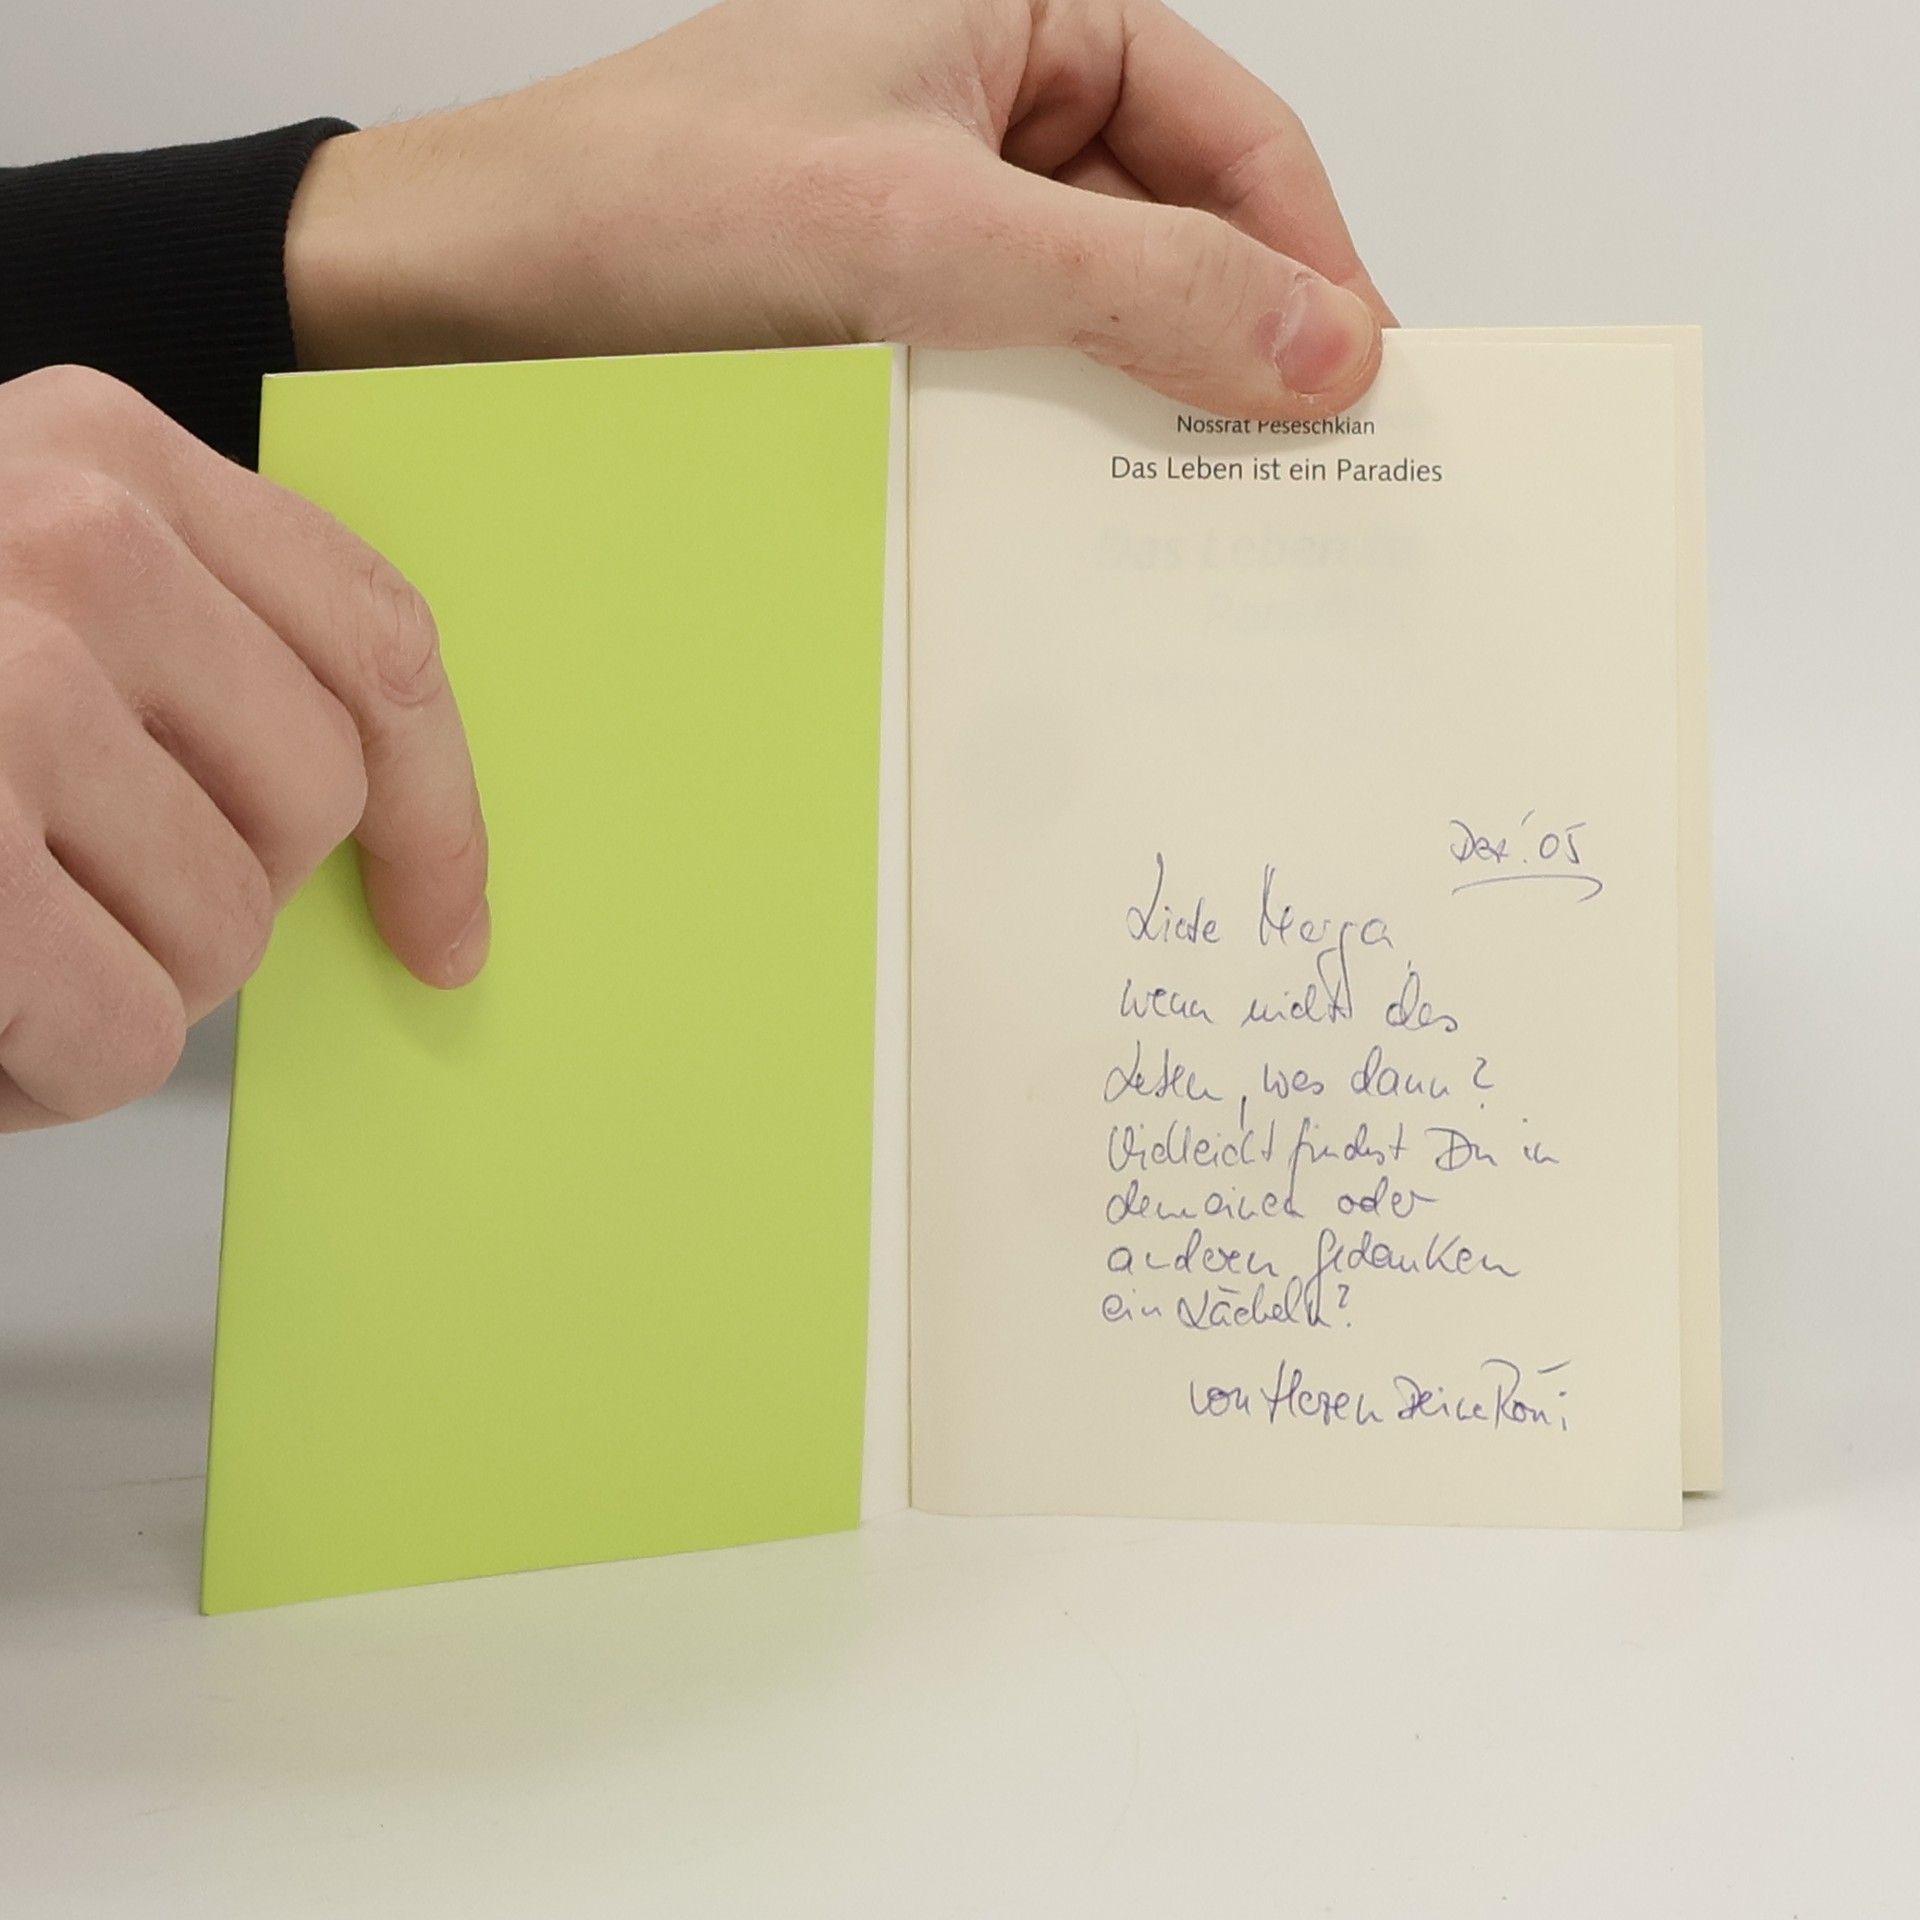 Nossrat Peseschkian
Das Leben ist ein Paradies
Das Leben ist
Dez.'05
Liebe Marga,
wenn nicht das
Leben, was dann?
Vielleicht findest Du in
dem einen oder
anderen Gedanken
ein Lächeln?
von Herzen Deine Roni